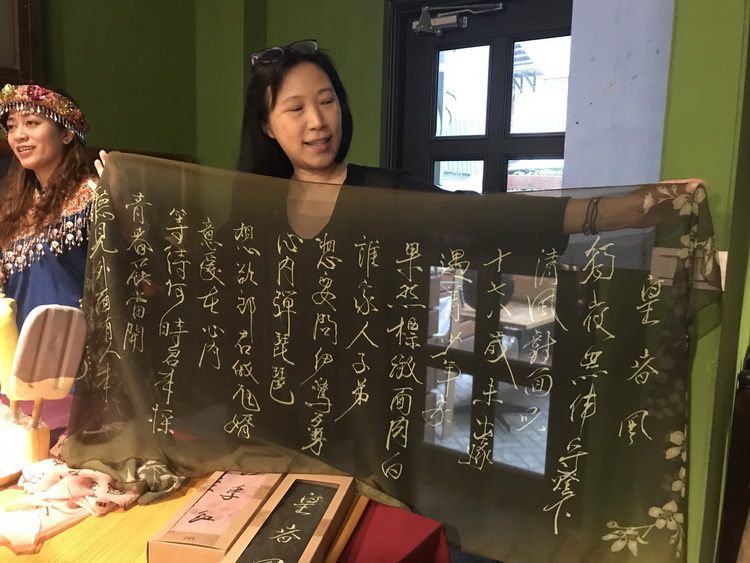 望春風
獨夜無伴守燈下
清風對面吹
十七八歲未出嫁
遇著少年家
果然標緻面肉白
誰家人子弟
想要問伊驚歹勢
心內彈琵琶
想欲郎君做尪婿
意愛在心內
等待何時君來採
青春花當開
聽見外面有人來
季紅
望春風